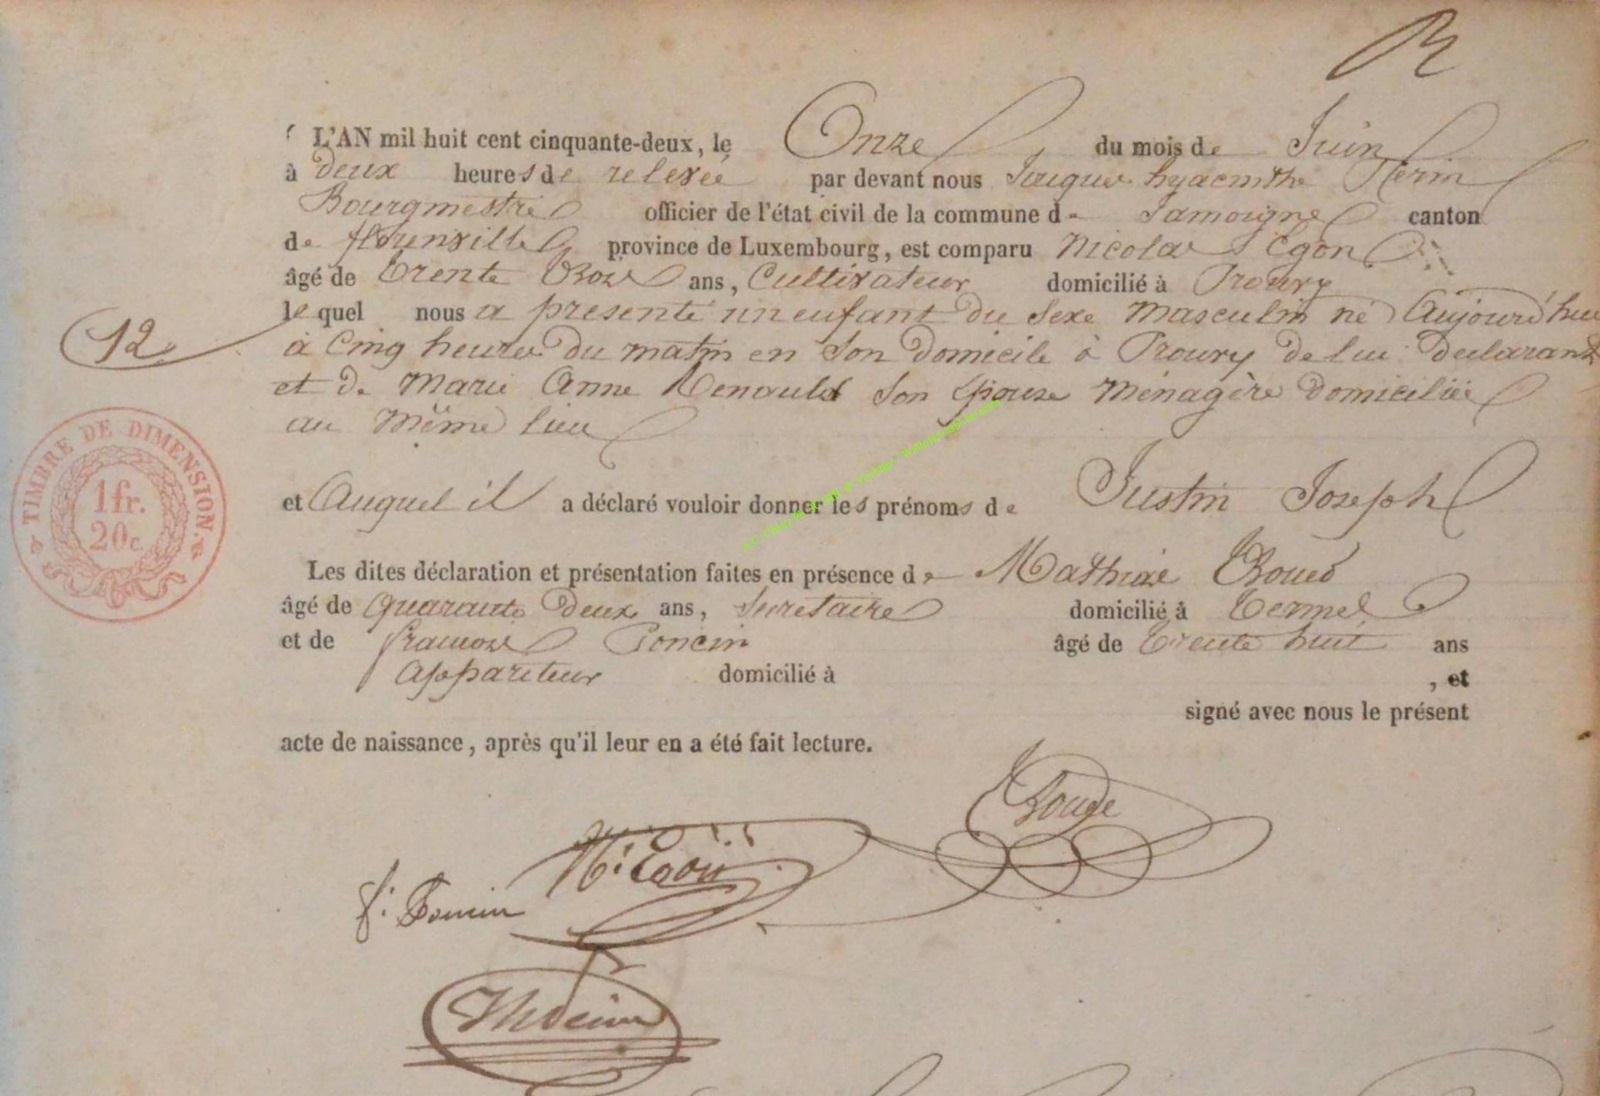 L'AN mil huit cent cinquante-deux, le Onze du mois de Juin
à deux heures de relevée par devant nous Jacques hyacinthe
Bourgmestre officier de l'état civil de la commune de Jamoigne canton
de florenville province de Luxembourg, est comparu Nicolas Egon
âgé de trente trois ans, Cultivateur domicilié à Prouvy
le quel nous a présenté un enfant du sexe masculin né Aujourd'hui
12
à Cinq heures du matin en Son domicile à Prouvy de lui déclarant
et de Marie Anne Renauld Son épouse Ménagère domiciliée
au même lieu
TIMBRE DE DIMENSION.
1 fr.
20 c.
et Auquel il a déclaré vouloir donner les prénoms de Justin Joseph
Les dites déclaration et présentation faites en présence de Mathias
âgé de quarante deux ans, Secrétaire domicilié à Termes
et de françois Poncin âgé de trente huit ans
Appariteur domicilié à , et
signé avec nous le présent
acte de naissance, après qu'il leur en a été fait lecture.
f: Poncin